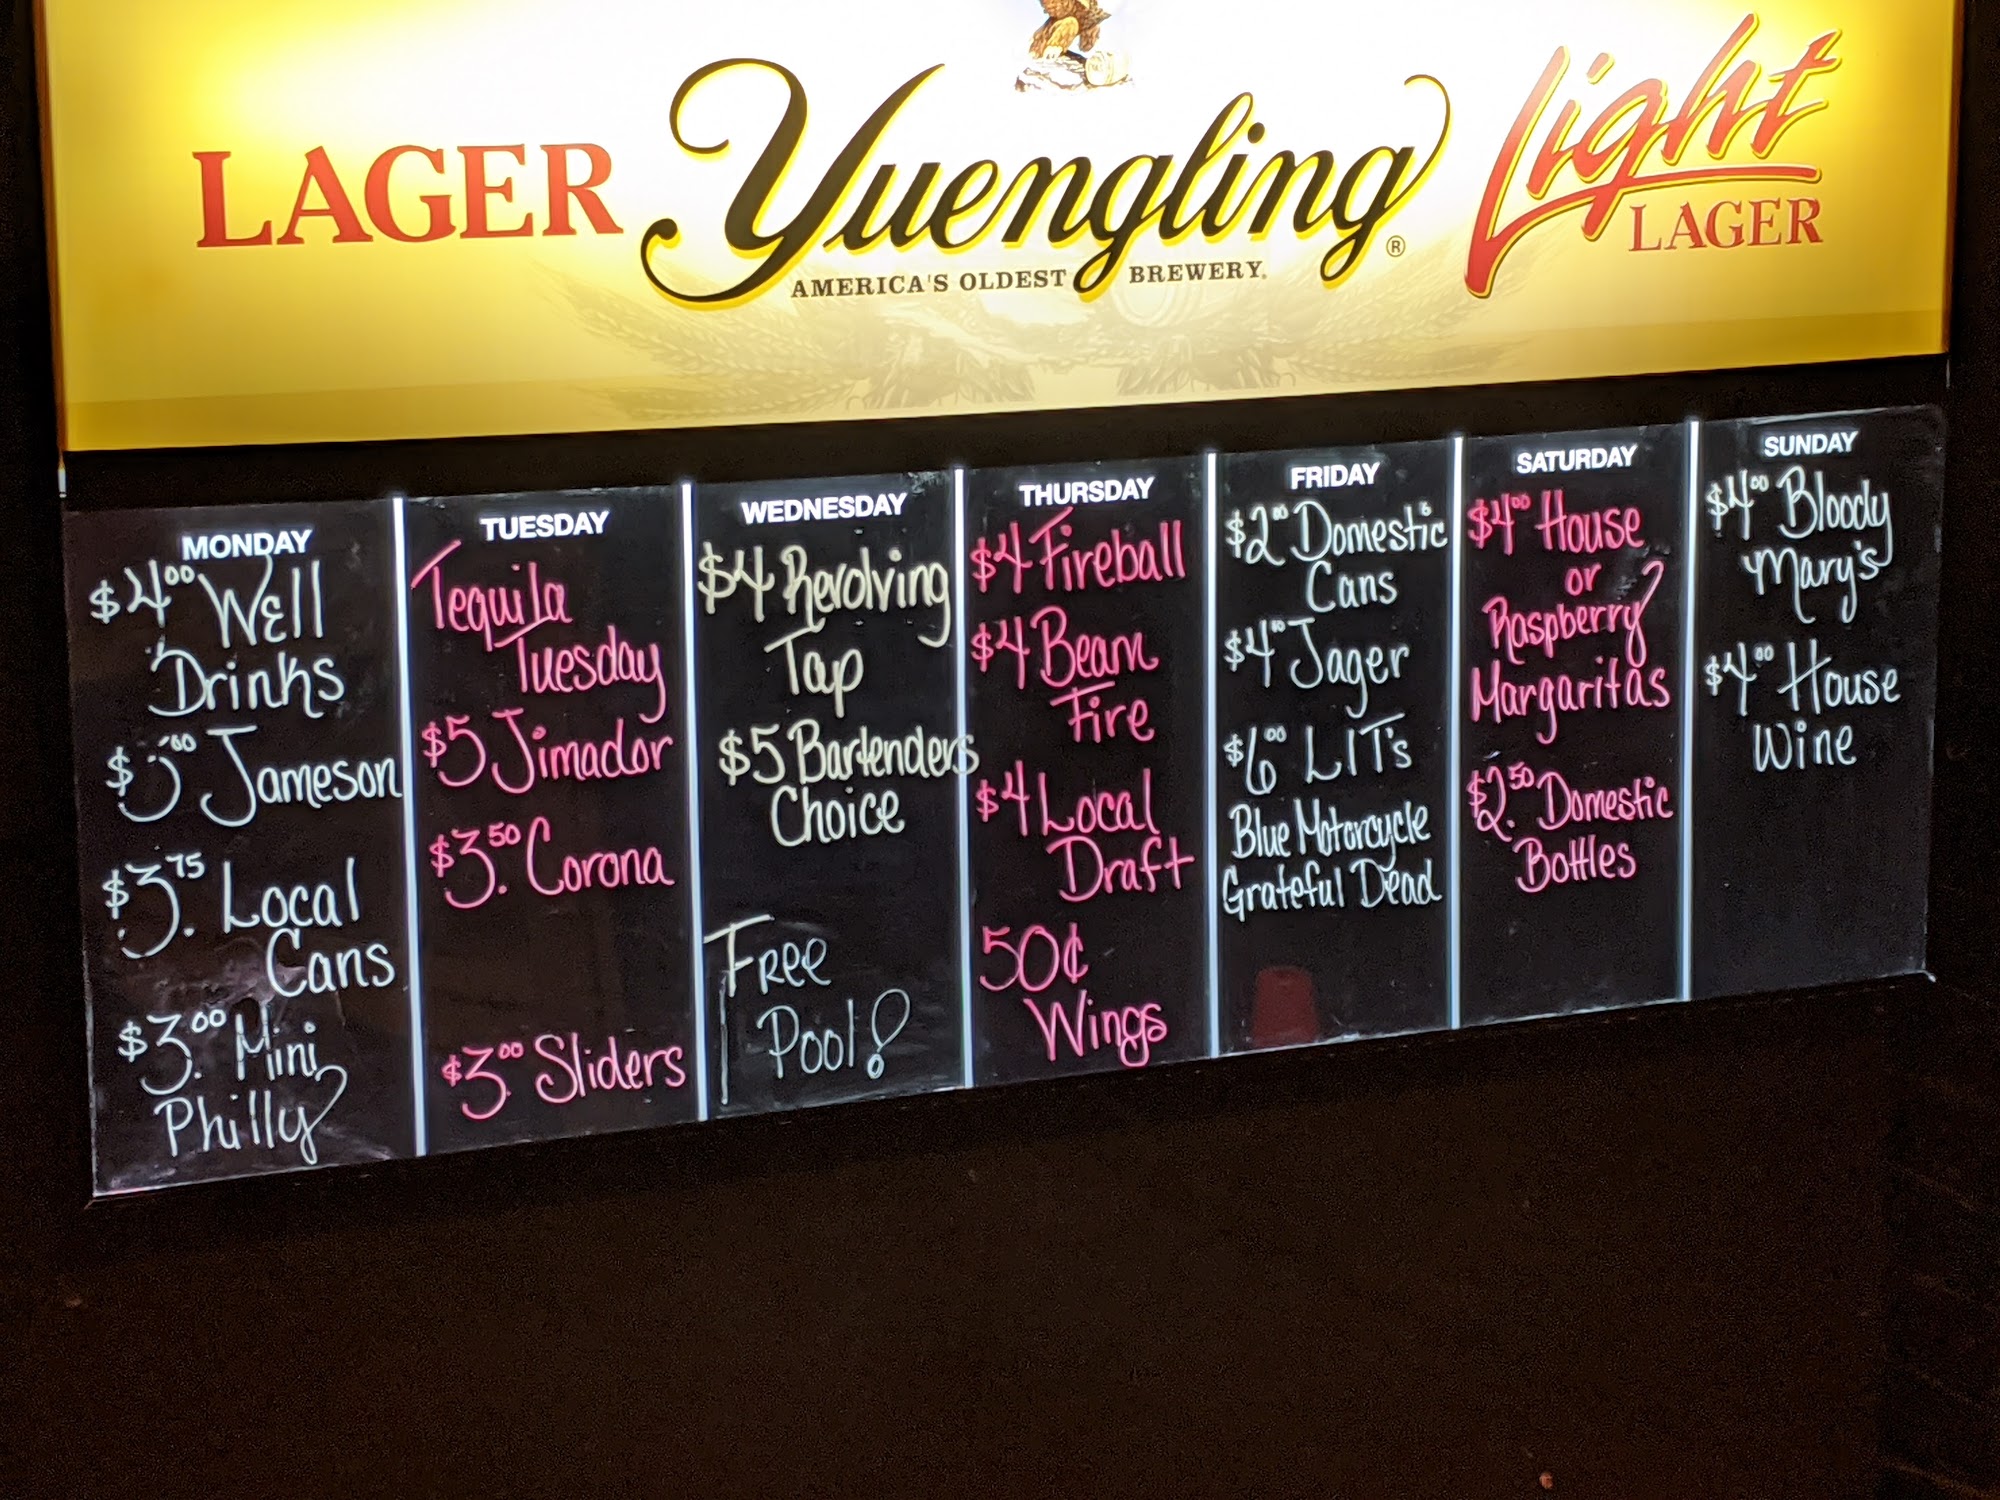 LAGER Yuengling® Light
LAGER
AMERICA'S OLDEST BREWERY.
MONDAY
$4.00 Well
Drinks
$5.00 Jameson
$3.75 Local
Cans
$3.00 Mini
Philly
TUESDAY
Tequila
Tuesday
$5 Jimador
$3.50 Corona
$3.00 Sliders
WEDNESDAY
$4 Revolving
Tap
$5 Bartenders
Choice
Free
Pool!
THURSDAY
$4 Fireball
$4 Beam
Fire
$4 Local
Draft
50¢
Wings
FRIDAY
$2.00 Domestic
Cans
$4.00 Jager
$6.00 LIT's
Blue Motorcycle
Grateful Dead
SATURDAY
$4.00 House
or
Raspberry
Margaritas
$2.50 Domestic
Bottles
SUNDAY
$4.00 Bloody
Mary's
$4.00 House
Wine